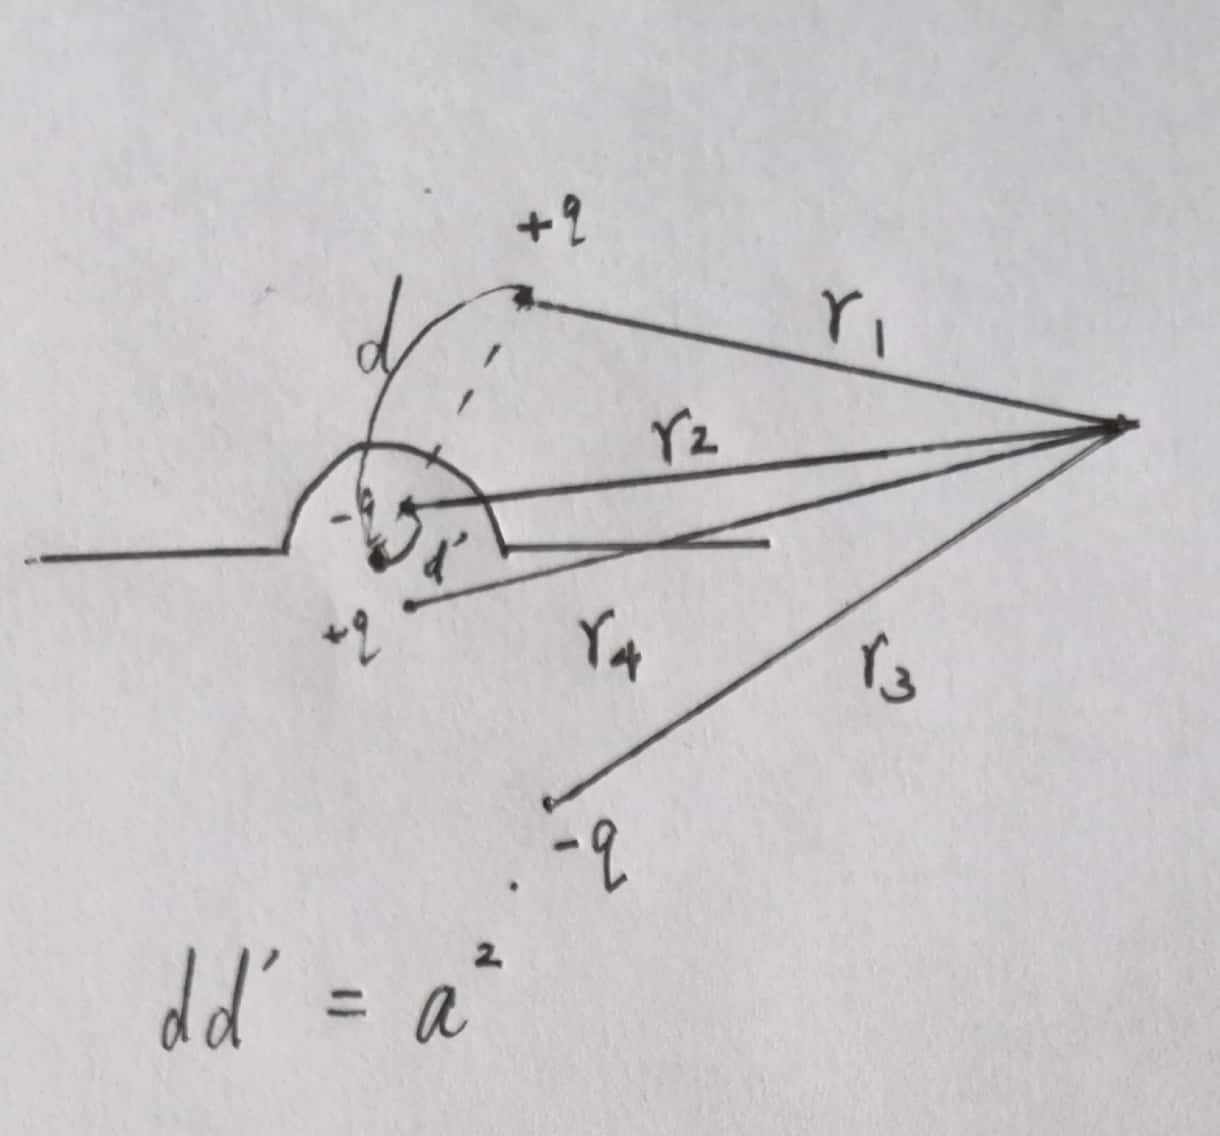 +q
d
r1
r2
-q
d'
+q
r4
r3
-q
dd' = a²